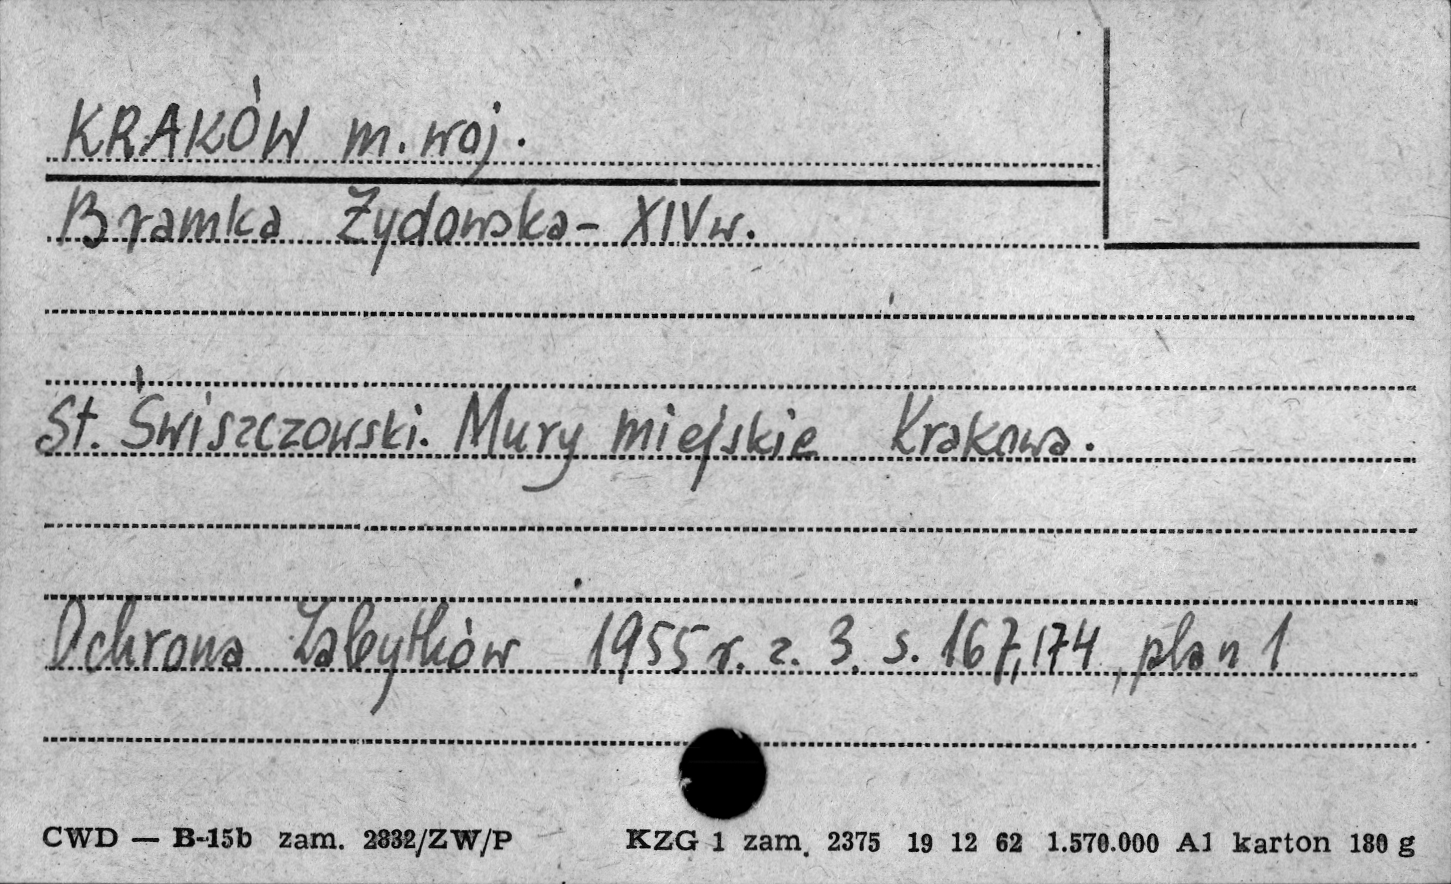 KRAKÓW m. woj.
Bramka Żydowska - XIV w.
St. Świszczowski. Mury miejskie Krakowa.
Ochrona Zabytków 1955 r. z. 3. s. 167, 174, plan 1
CWD — B-15b zam. 2832/ZW/P KZG 1 zam. 2375 19 12 62 1.570.000 A1 karton 180 g